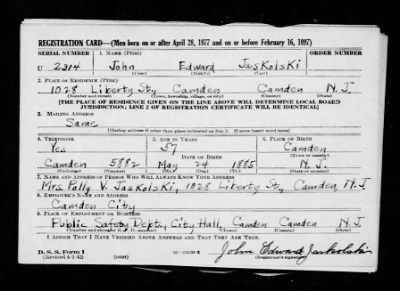 REGISTRATION CARD—(Men born on or after April 28, 1877 and on or before February 16, 1897)
SERIAL NUMBER 1. NAME (Print) ORDER NUMBER
U 2314 John Edward Jaskolski
(First) (Middle) (Last)
2. PLACE OF RESIDENCE (Print)
1028 Liberty St., Camden Camden N.J.
(Number and street) (Town, township, village, or city) (County) (State)
[THE PLACE OF RESIDENCE GIVEN ON THE LINE ABOVE WILL DETERMINE LOCAL BOARD
JURISDICTION; LINE 2 OF REGISTRATION CERTIFICATE WILL BE IDENTICAL]
3. MAILING ADDRESS
Same
[Mailing address if other than place indicated on line 2. If same insert word same]
4. TELEPHONE 5. AGE IN YEARS 6. PLACE OF BIRTH
Yes 57 Camden
DATE OF BIRTH (Town or county)
Camden 5882 May 24 1885 N.J.
7. NAME AND ADDRESS OF PERSON WHO WILL ALWAYS KNOW YOUR ADDRESS
Mrs. Polly V. Jaskolski, 1028 Liberty St., Camden, N.J.
8. EMPLOYER'S NAME AND ADDRESS
Camden City
9. PLACE OF EMPLOYMENT OR BUSINESS
Public Safety Dept., City Hall, Camden Camden N.J.
I AFFIRM THAT I HAVE VERIFIED ABOVE ANSWERS AND THAT THEY ARE TRUE.
D. S. S. Form 1
(Revised 4-1-42) John Edward Jaskolski